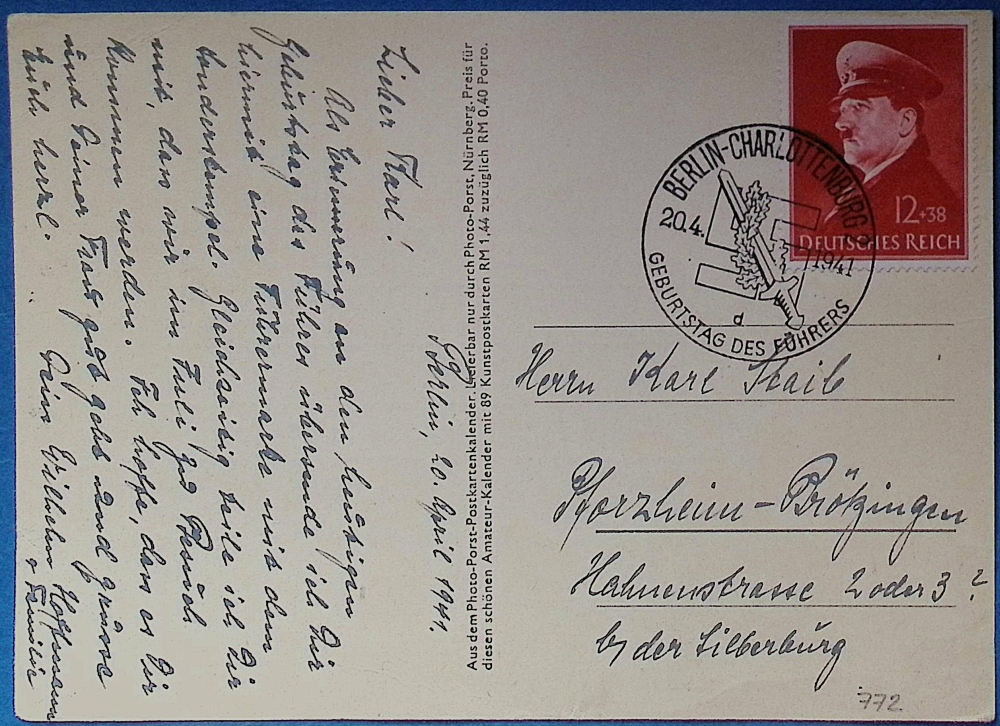 Berlin, 20. April 1941.
Lieber Karl!
Als Erinnerung an den heutigen
Geburtstag des Führers übersende ich Dir
hiermit eine Führermarke mit dem
Sonderstempel. Gleichzeitig teile ich Dir
mit, dass wir im Juli zu Besuch
kommen werden. Ich hoffe, dass es Dir
und Deiner Frau gut geht und grüsse
Euch herzl. Dein Wilhelm Hoffmann
+ Familie
Aus dem Photo-Porst-Postkartenkalender. Lieferbar nur durch Photo-Porst, Nürnberg. Preis für
diesen schönen Amateur-Kalender mit 89 Kunstpostkarten RM 1,44 zuzüglich RM 0,40 Porto.
12+38
DEUTSCHES REICH
BERLIN-CHARLOTTENBURG
20.4. 1941
d
GEBURTSTAG DES FÜHRERS
Herrn Karl Staib
Pforzheim-Brötzingen
Hahnenstrasse 2 oder 3 ?
b/ der Silberburg
772